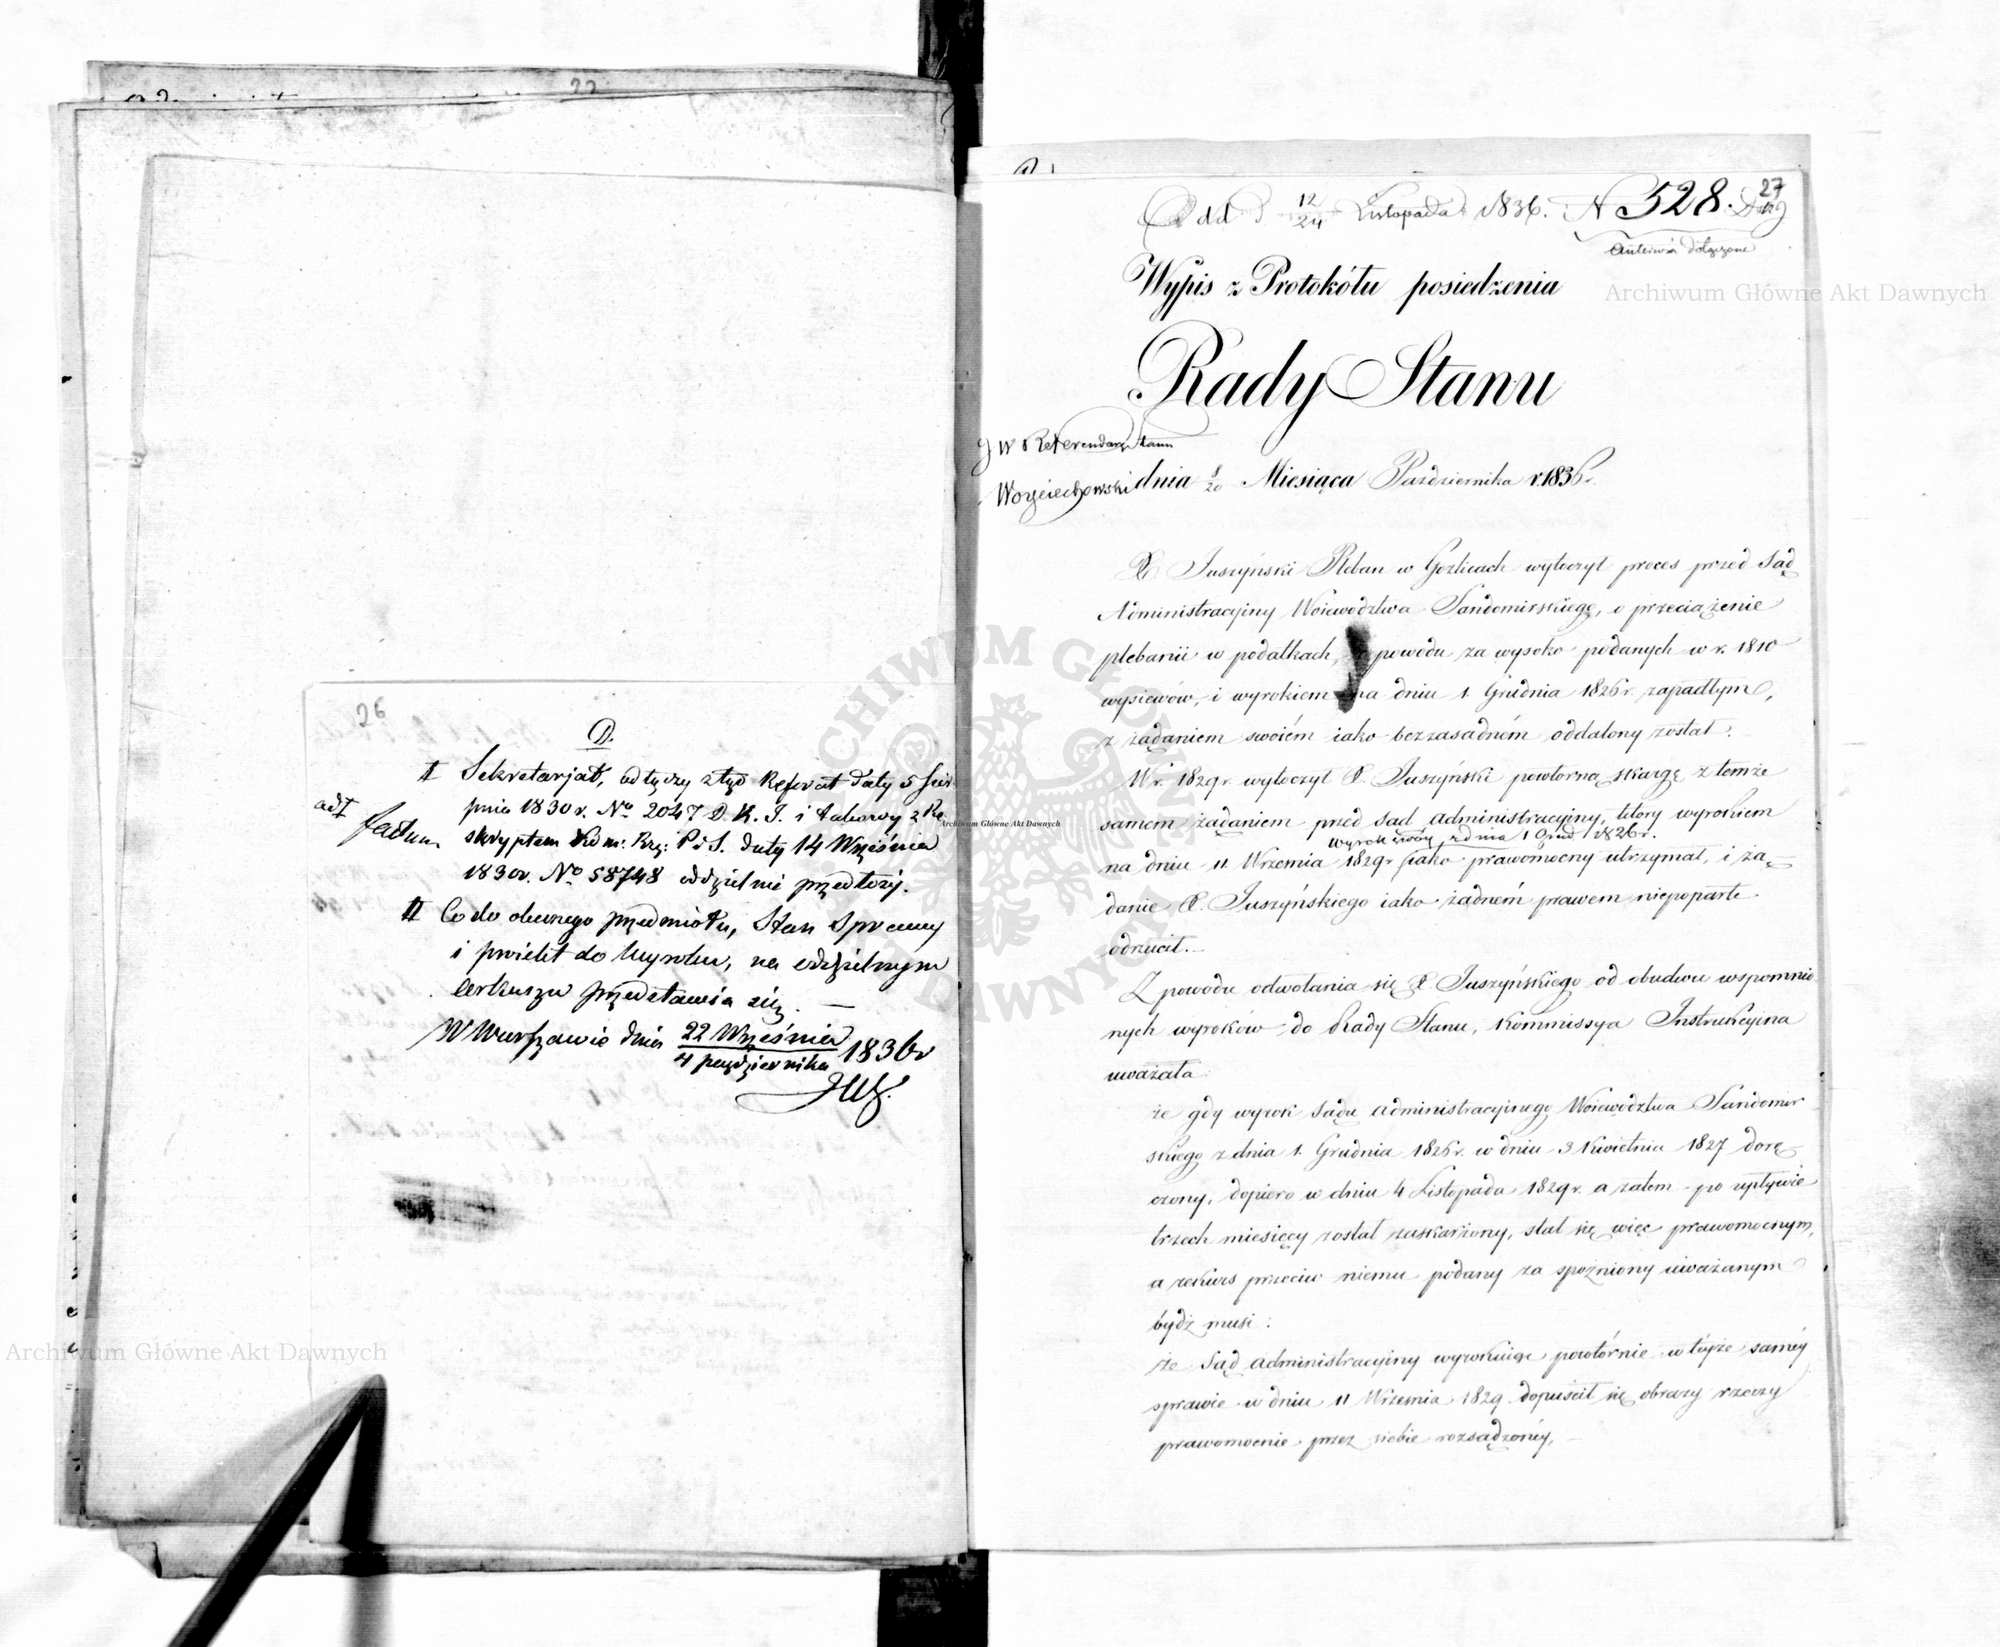 26
D.
I Sekretarjat, odłączy z tąd Referat daty 5 Sier-
pnia 1830 r. No 2047 D. K. J. i takowy z Re-
skryptem Kom: Rzą: P i S. daty 14 Września
1830 r. No 58748 oddzielnie przedłoży.
ad I
factum
II Co do obecnego przedmiotu, Stan Sprawy
i proiekt do Wyroku, na oddzielnym
arkuszu przedstawia się. —
W Warszawie dnia 22 Września
4 października 1836 r
27
Odd 12/24 Listopada 1836. N 528.
dołączone
Wypis z Protokółu posiedzenia
Rady Stanu
JW Referendarz Stanu
Wojciechowski
dnia 8/20 Miesiąca Października r. 1836.
X Juszyński Pleban w Gozlicach wytoczył proces przed Sąd
Administracyjny Woiewództwa Sandomirskiego, o przeciążenie
plebanii w podatkach, z powodu za wysoko podanych w r. 1810
wysiewów, i wyrokiem na dniu 1. Grudnia 1826 r. zapadłym,
z żądaniem swoiém iako bezzasadném oddalony został.
W r. 1829 r. wytoczył X. Juszyński powtórną skargę z temże
samem żądaniem przed sąd administracyjny, który wyrokiem
wyrok swóy z dnia 1 Grud. 1826 r.
na dniu 11. Września 1829 r iako prawomocny utrzymał, i żą-
danie X. Juszyńskiego iako żadném prawem niepoparte
odrzucił.—
Z powodu odwołania się X Juszyńskiego od obudwu wspomnio-
nych wyroków do Rady Stanu, Kommissya Instrukcyina
uważała:
że gdy wyrok Sądu administracyinego Woiewództwa Sandomir-
skiego z dnia 1. Grudnia 1826 r. w dniu 3 Kwietnia 1827 dorę-
czony, dopiero w dniu 4 Listopada 1829 r. a zatem po upływie
trzech miesięcy został zaskarżony, stał się więc prawomocnym,
a rekurs przeciw niemu podany za spoźniony uważanym
bydź musi:
że Sąd administracyiny wyrokuiąc powtórnie w téyże saméy
sprawie w dniu 11 Września 1829 dopuścił się obrazy rzeczy
prawomocnie przez siebie rozsądzonéy, —
Archiwum Główne Akt Dawnych
Archiwum Główne Akt Dawnych
Archiwum Główne Akt Dawnych